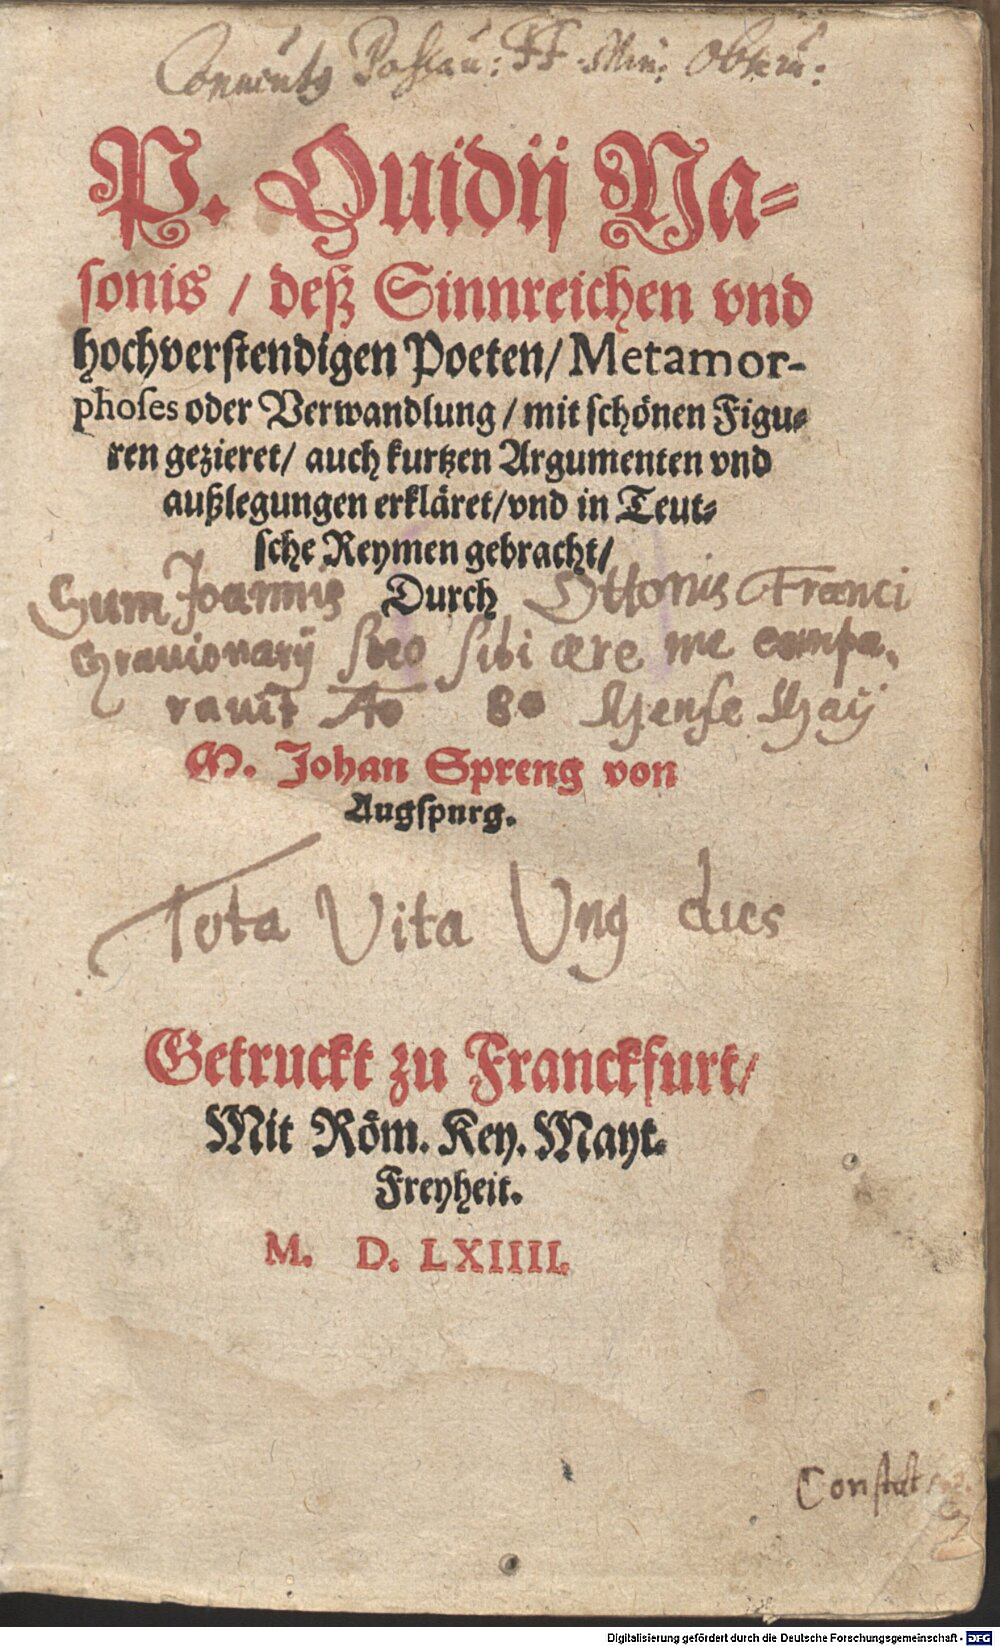 Conuentus Passau: FF. Min. Obseru:
P. Ouidij Na⸗
sonis / deß Sinnreichen vnd
hochverstendigen Poeten/ Metamor-
phoſes oder Verwandlung / mit schönen Figu⸗
ren gezieret/ auch kurtzen Argumenten vnd
außlegungen erkläret/vnd in Teut⸗
sche Reymen gebracht/
Durch
Sum Joannis Ottonis Franci
Grauionarij suo sibi ære me compa,
rauit Ao 80 Mense Maij
M. Johan Spreng von
Augspurg.
Tota Vita Unus dies
Getruckt zu Franckfurt/
Mit Röm. Key. Mayt.
Freyheit.
M. D. LXIIII.
Constat
Digitalisierung gefördert durch die Deutsche Forschungsgemeinschaft - DFG